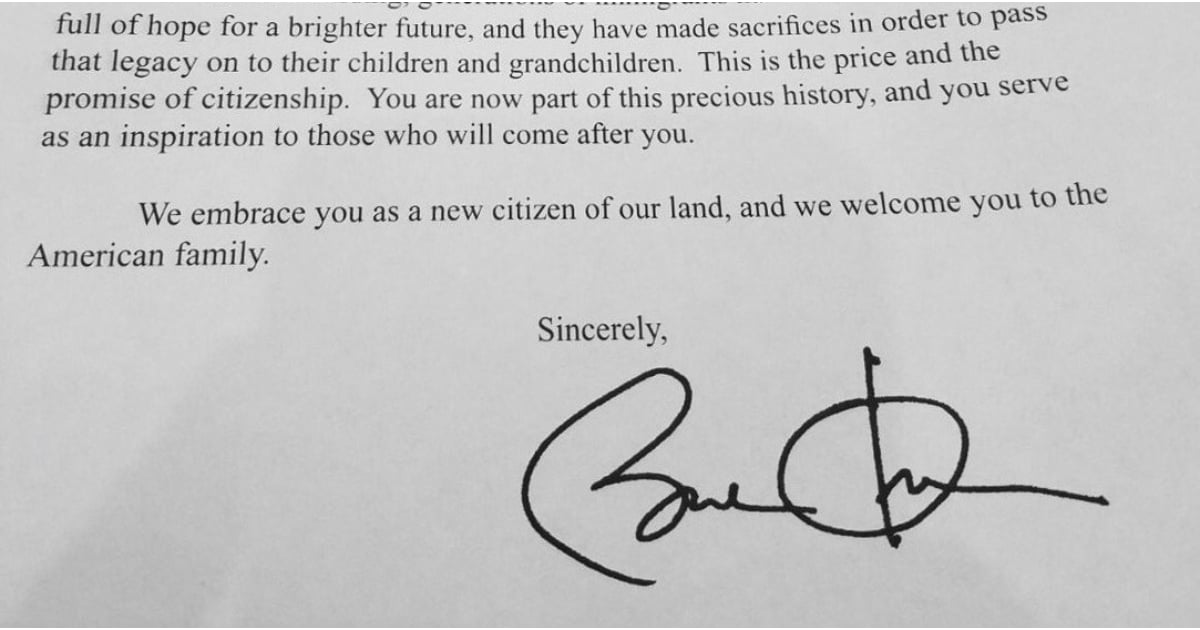 full of hope for a brighter future, and they have made sacrifices in order to pass
that legacy on to their children and grandchildren.  This is the price and the
promise of citizenship.  You are now part of this precious history, and you serve
as an inspiration to those who will come after you.
We embrace you as a new citizen of our land, and we welcome you to the
American family.
Sincerely,